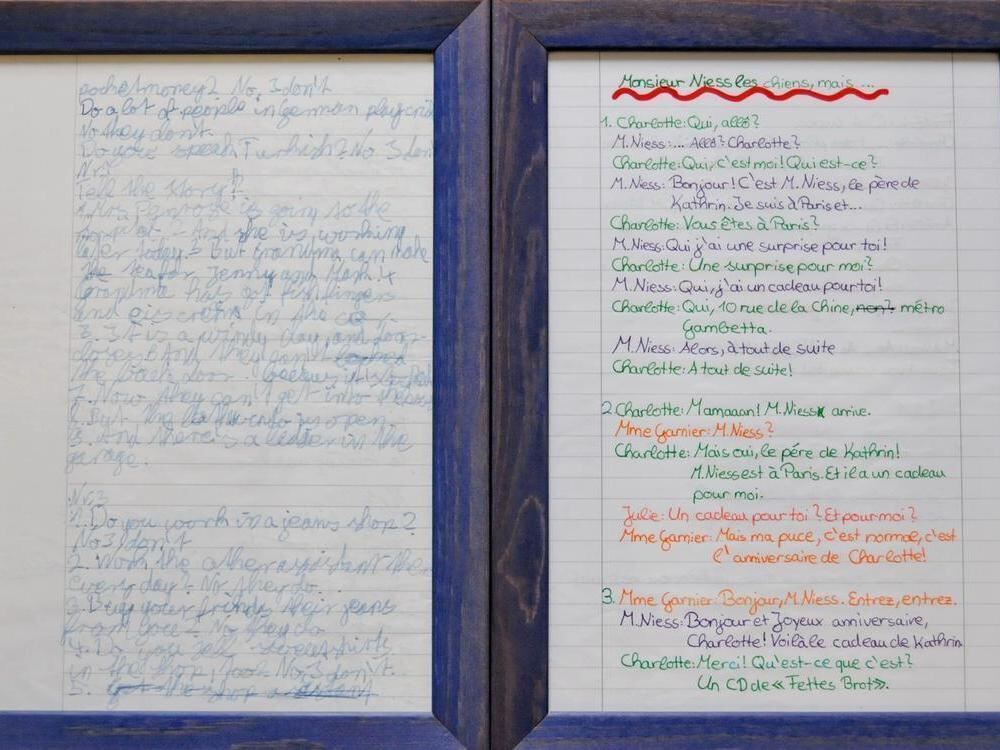 pocketmoney? No, I don't
Do a lot of people in German play
No they don't.
Do you speak Turkish? No I don
Nr.
Tell the story?
1. Mrs Penrose is going to the
And she is working
later today? But Grandma can make
the tea for Jenny and Mark. 4
Grandma has got fishfingers
and in the
3. It is a windy day, and
And they can't
the back door.
7. Now they can't get into the
But the is open.
And there's a ladder in the
garage.
Nr.3
1. Do you work in a jeans shop?
No I don't
2. Work the other assistant ther
every day? No, ther do.
3. Buy your friends their jeans
from No they do
4. Do you sell sweatshirts
in the shop, too? No, I don't.
5. the shop a
Monsieur Niess les chiens, mais ...
1. Charlotte: Qui, allô?
M.Niess: ... Allô? Charlotte?
Charlotte: Qui, c'est moi! Qui est-ce?
M.Niess: Bonjour! C'est M.Niess, le père de
Kathrin. Je suis à Paris et...
Charlotte: Vous êtes à Paris?
M.Niess: Qui j'ai une surprise pour toi!
Charlotte: Une surprise pour moi?
M.Niess: Qui, j'ai un cadeau pour toi!
Charlotte: Qui, 10 rue de la Chine, non? métro
Gambetta.
M.Niess: Alors, à tout de suite
Charlotte: A tout de suite!
2. Charlotte: Mamaaan! M.Niess arrive.
Mme Garnier: M.Niess?
Charlotte: Mais oui, le pére de Kathrin!
M.Niess est à Paris. Et il a un cadeau
pour moi.
Julie: Un cadeau pour toi? Et pour moi?
Mme Garnier: Mais ma puce, c'est normal, c'est
l'anniversaire de Charlotte!
3. Mme Garnier: Bonjour, M.Niess. Entrez, entrez.
M.Niess: Bonjour et Joyeux anniversaire,
Charlotte! Voilà le cadeau de Kathrin
Charlotte: Merci! Qu'est-ce que c'est?
Un CD de «Fettes Brot».